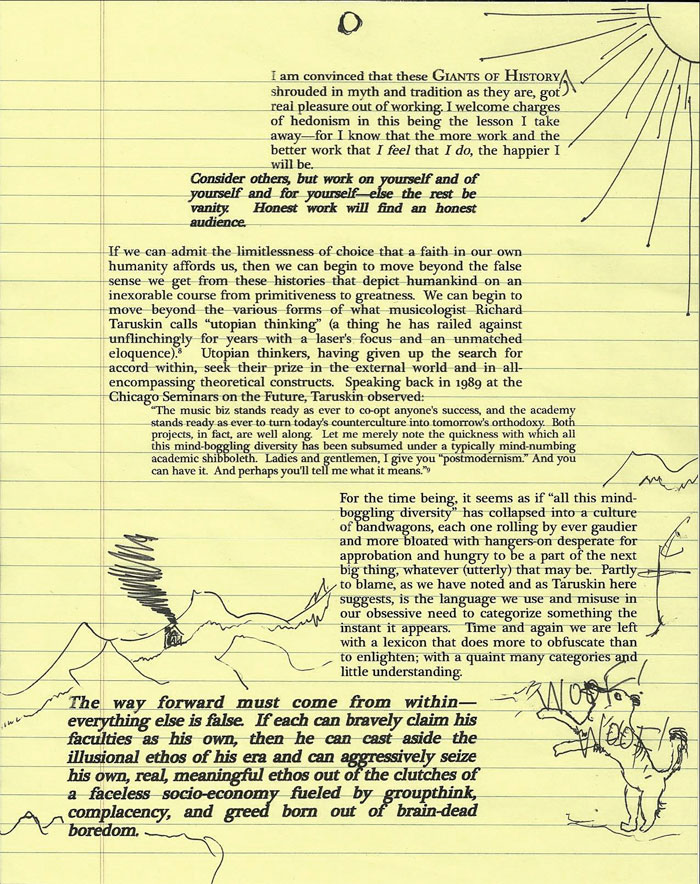 I am convinced that these GIANTS OF HISTORY,
shrouded in myth and tradition as they are, got
real pleasure out of working. I welcome charges
of hedonism in this being the lesson I take
away—for I know that the more work and the
better work that I feel that I do, the happier I
will be.
Consider others, but work on yourself and of
yourself and for yourself—else the rest be
vanity. Honest work will find an honest
audience.
If we can admit the limitlessness of choice that a faith in our own
humanity affords us, then we can begin to move beyond the false
sense we get from these histories that depict humankind on an
inexorable course from primitiveness to greatness. We can begin to
move beyond the various forms of what musicologist Richard
Taruskin calls “utopian thinking” (a thing he has railed against
unflinchingly for years with a laser's focus and an unmatched
eloquence).⁸ Utopian thinkers, having given up the search for
accord within, seek their prize in the external world and in all-
encompassing theoretical constructs. Speaking back in 1989 at the
Chicago Seminars on the Future, Taruskin observed:
“The music biz stands ready as ever to co-opt anyone's success, and the academy
stands ready as ever to turn today's counterculture into tomorrow's orthodoxy. Both
projects, in fact, are well along. Let me merely note the quickness with which all
this mind-boggling diversity has been subsumed under a typically mind-numbing
academic shibboleth. Ladies and gentlemen, I give you “postmodernism.” And you
can have it. And perhaps you'll tell me what it means.”⁹
For the time being, it seems as if “all this mind-
boggling diversity” has collapsed into a culture
of bandwagons, each one rolling by ever gaudier
and more bloated with hangers-on desperate for
approbation and hungry to be a part of the next
big thing, whatever (utterly) that may be. Partly
to blame, as we have noted and as Taruskin here
suggests, is the language we use and misuse in
our obsessive need to categorize something the
instant it appears. Time and again we are left
with a lexicon that does more to obfuscate than
to enlighten; with a quaint many categories and
little understanding.
WOOF
WOOF!
The way forward must come from within—
everything else is false. If each can bravely claim his
faculties as his own, then he can cast aside the
illusional ethos of his era and can aggressively seize
his own, real, meaningful ethos out of the clutches of
a faceless socio-economy fueled by groupthink,
complacency, and greed born out of brain-dead
boredom.